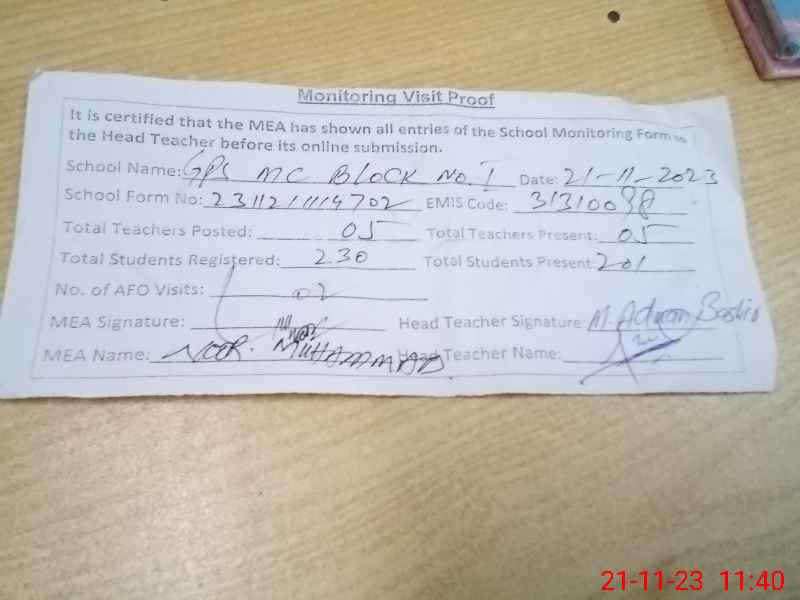 Monitoring Visit Proof
It is certified that the MEA has shown all entries of the School Monitoring Form to
the Head Teacher before its online submission.
School Name: GPS MC BLOCK No. I Date: 21-11-2023
School Form No: EMIS Code: 31310098
Total Teachers Posted: 05 Total Teachers Present: 05
Total Students Registered: 230 Total Students Present: 201
No. of AFO Visits: 02
MEA Signature: Head Teacher Signature: M. Adnan Bashir
MEA Name: NOOR. MUHAMMAD Head Teacher Name:
21-11-23 11:40